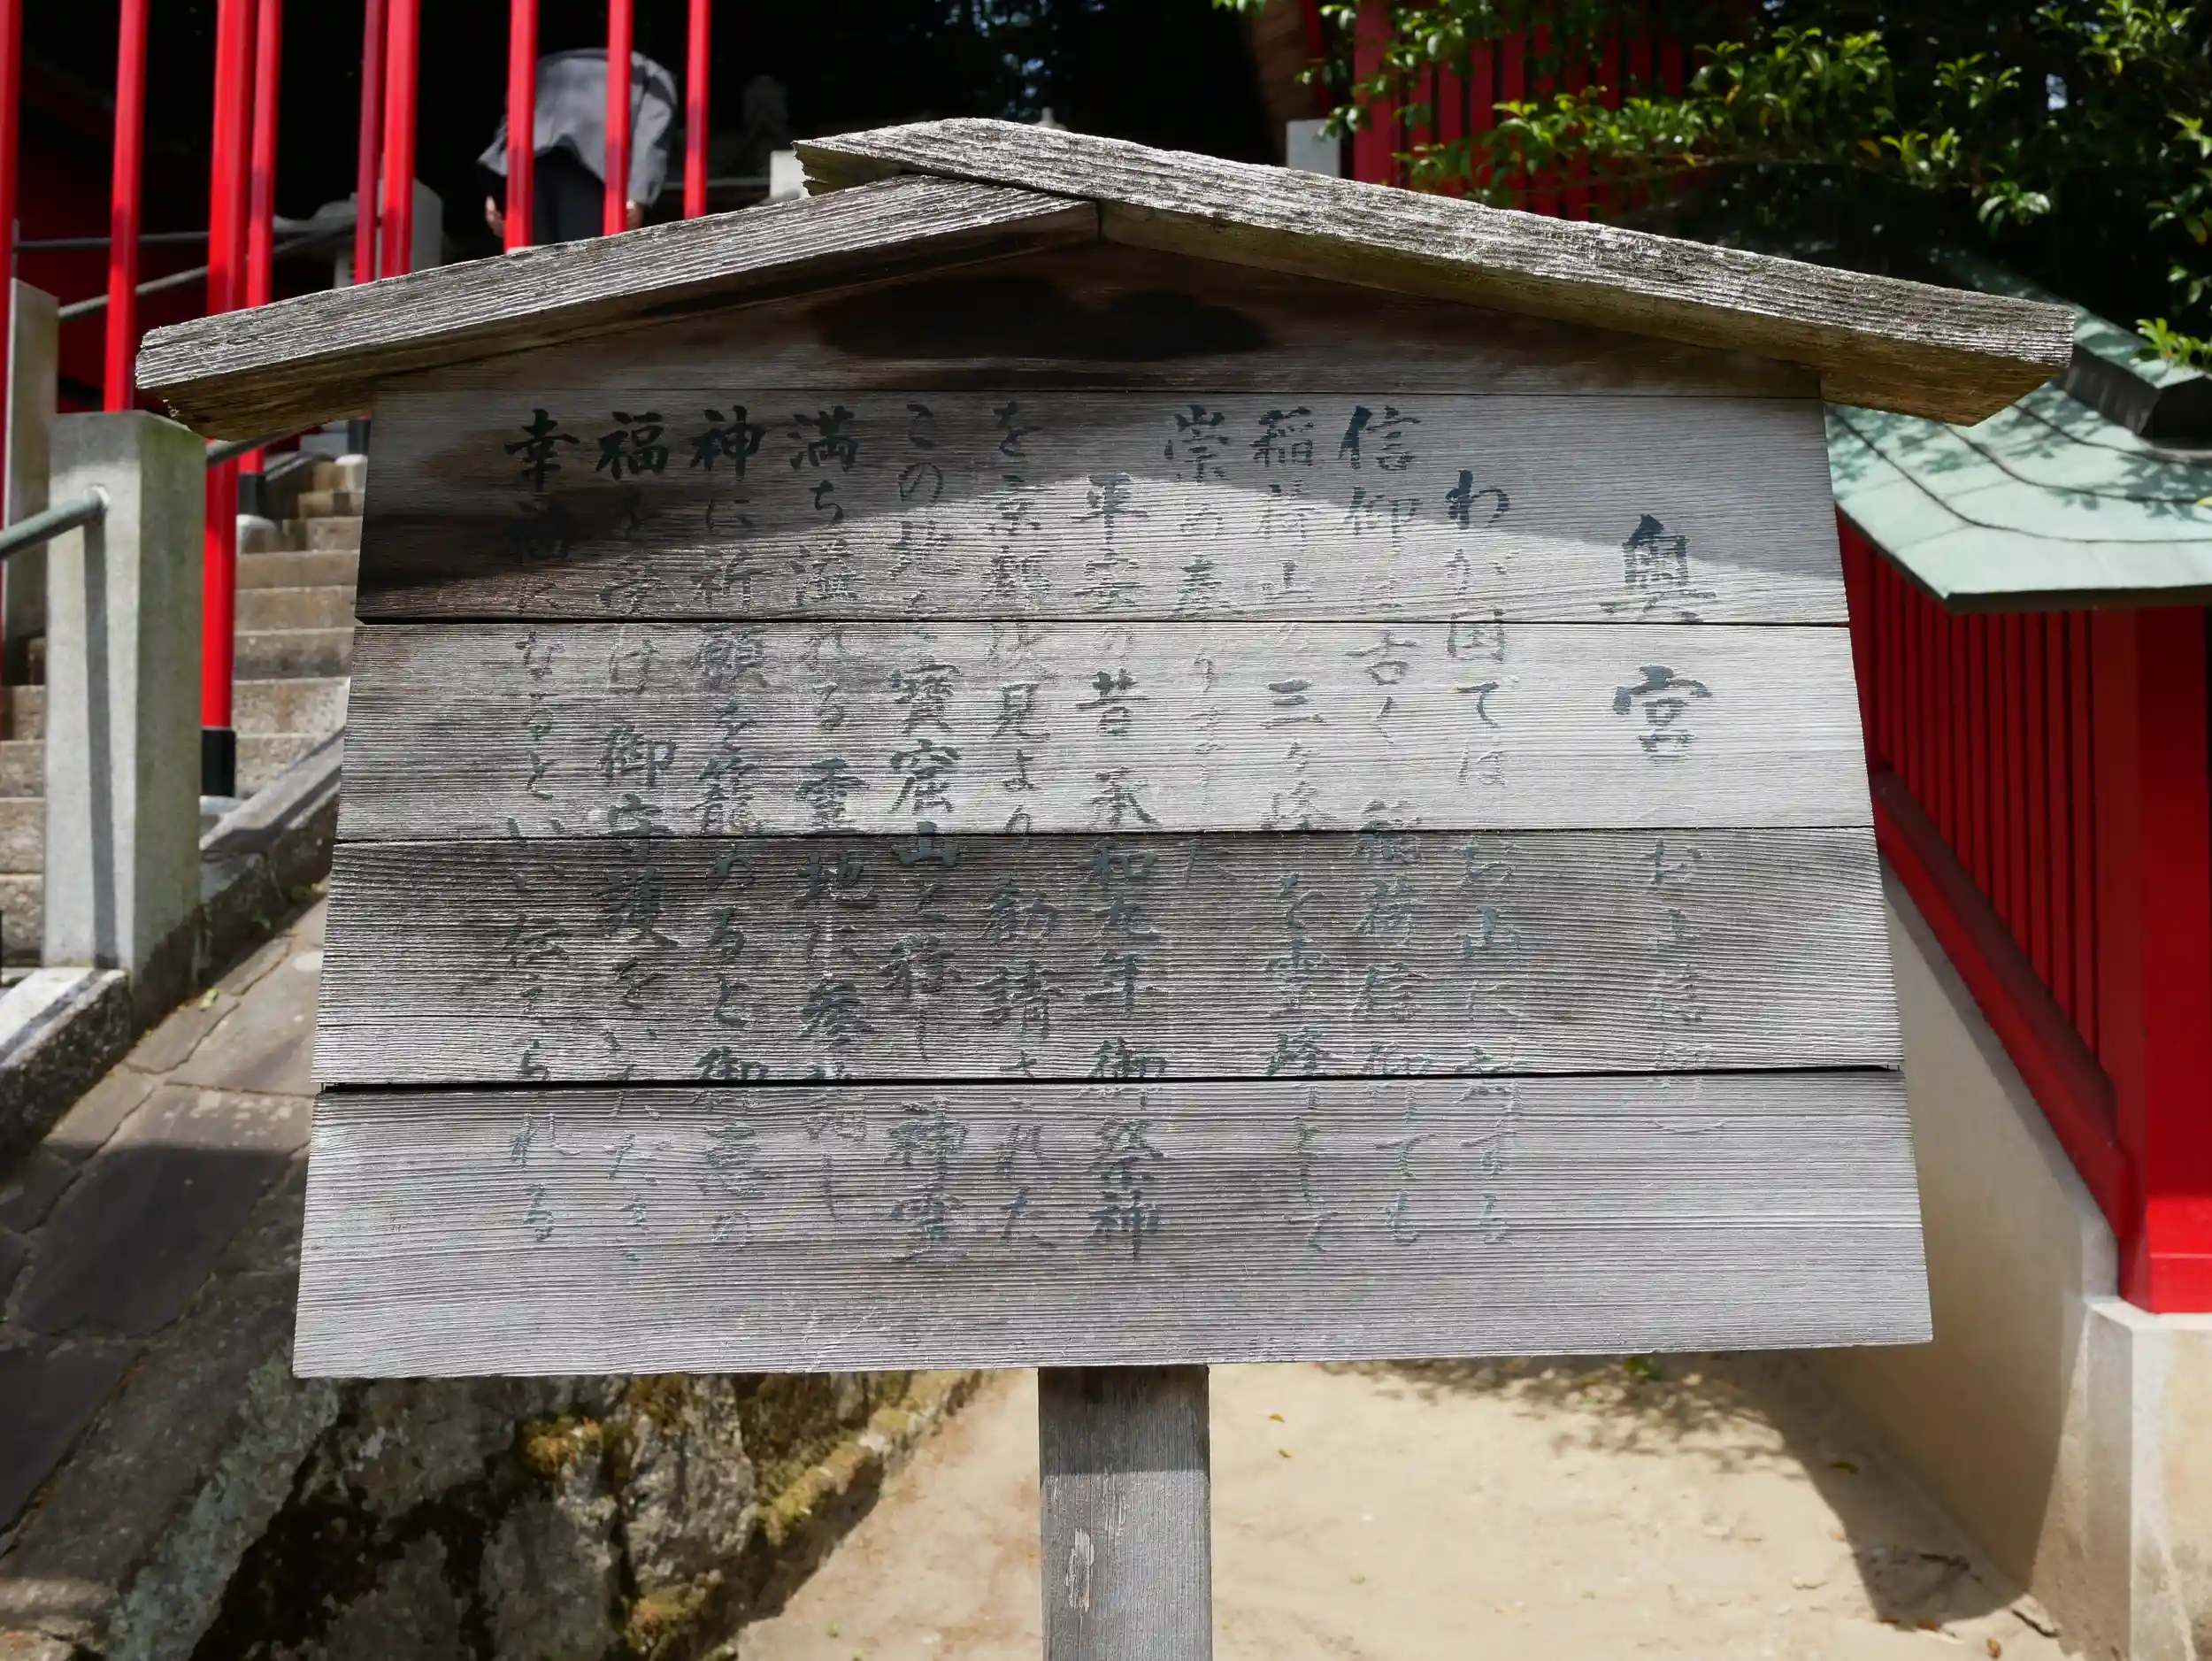 奥宮 (お山信仰)
わが国ではお山に対する
信仰は古く 稲荷信仰ても
稲荷山の三ヶ峰を霊峰として
崇め奉りました
平安の昔 承和九年 御祭神
を京都伏見より 勧請された
この地を寳窟山と称し 神霊
満ち溢れる霊地に参詣し
神に祈願を籠めると御神意の
福を受け 御守護をいただき
幸福になると いい伝えられる